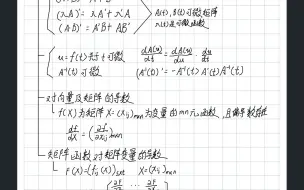 (λA)' = λA' + λ'A
(AB)' = A'B + AB'
A(t), B(t) 可微矩阵
λ(t) 是可微函数
u = f(t) 关于 t 可微 dA(u)/dt = dA(u)/du · du/dt
A⁻¹(t) 可微 (A⁻¹(t))' = -A⁻¹(t) A'(t) A⁻¹(t)
对向量及矩阵的导数
f(X) 为矩阵 X = (x_ij)_{m×n} 为变量的 mn 元函数 且偏导数存在
df/dX = (∂f/∂x_ij)_{m×n}
矩阵函数对矩阵变量的导数
F(X) = (f_ij(X))_{s×t} X = (x_ij)_{m×n}